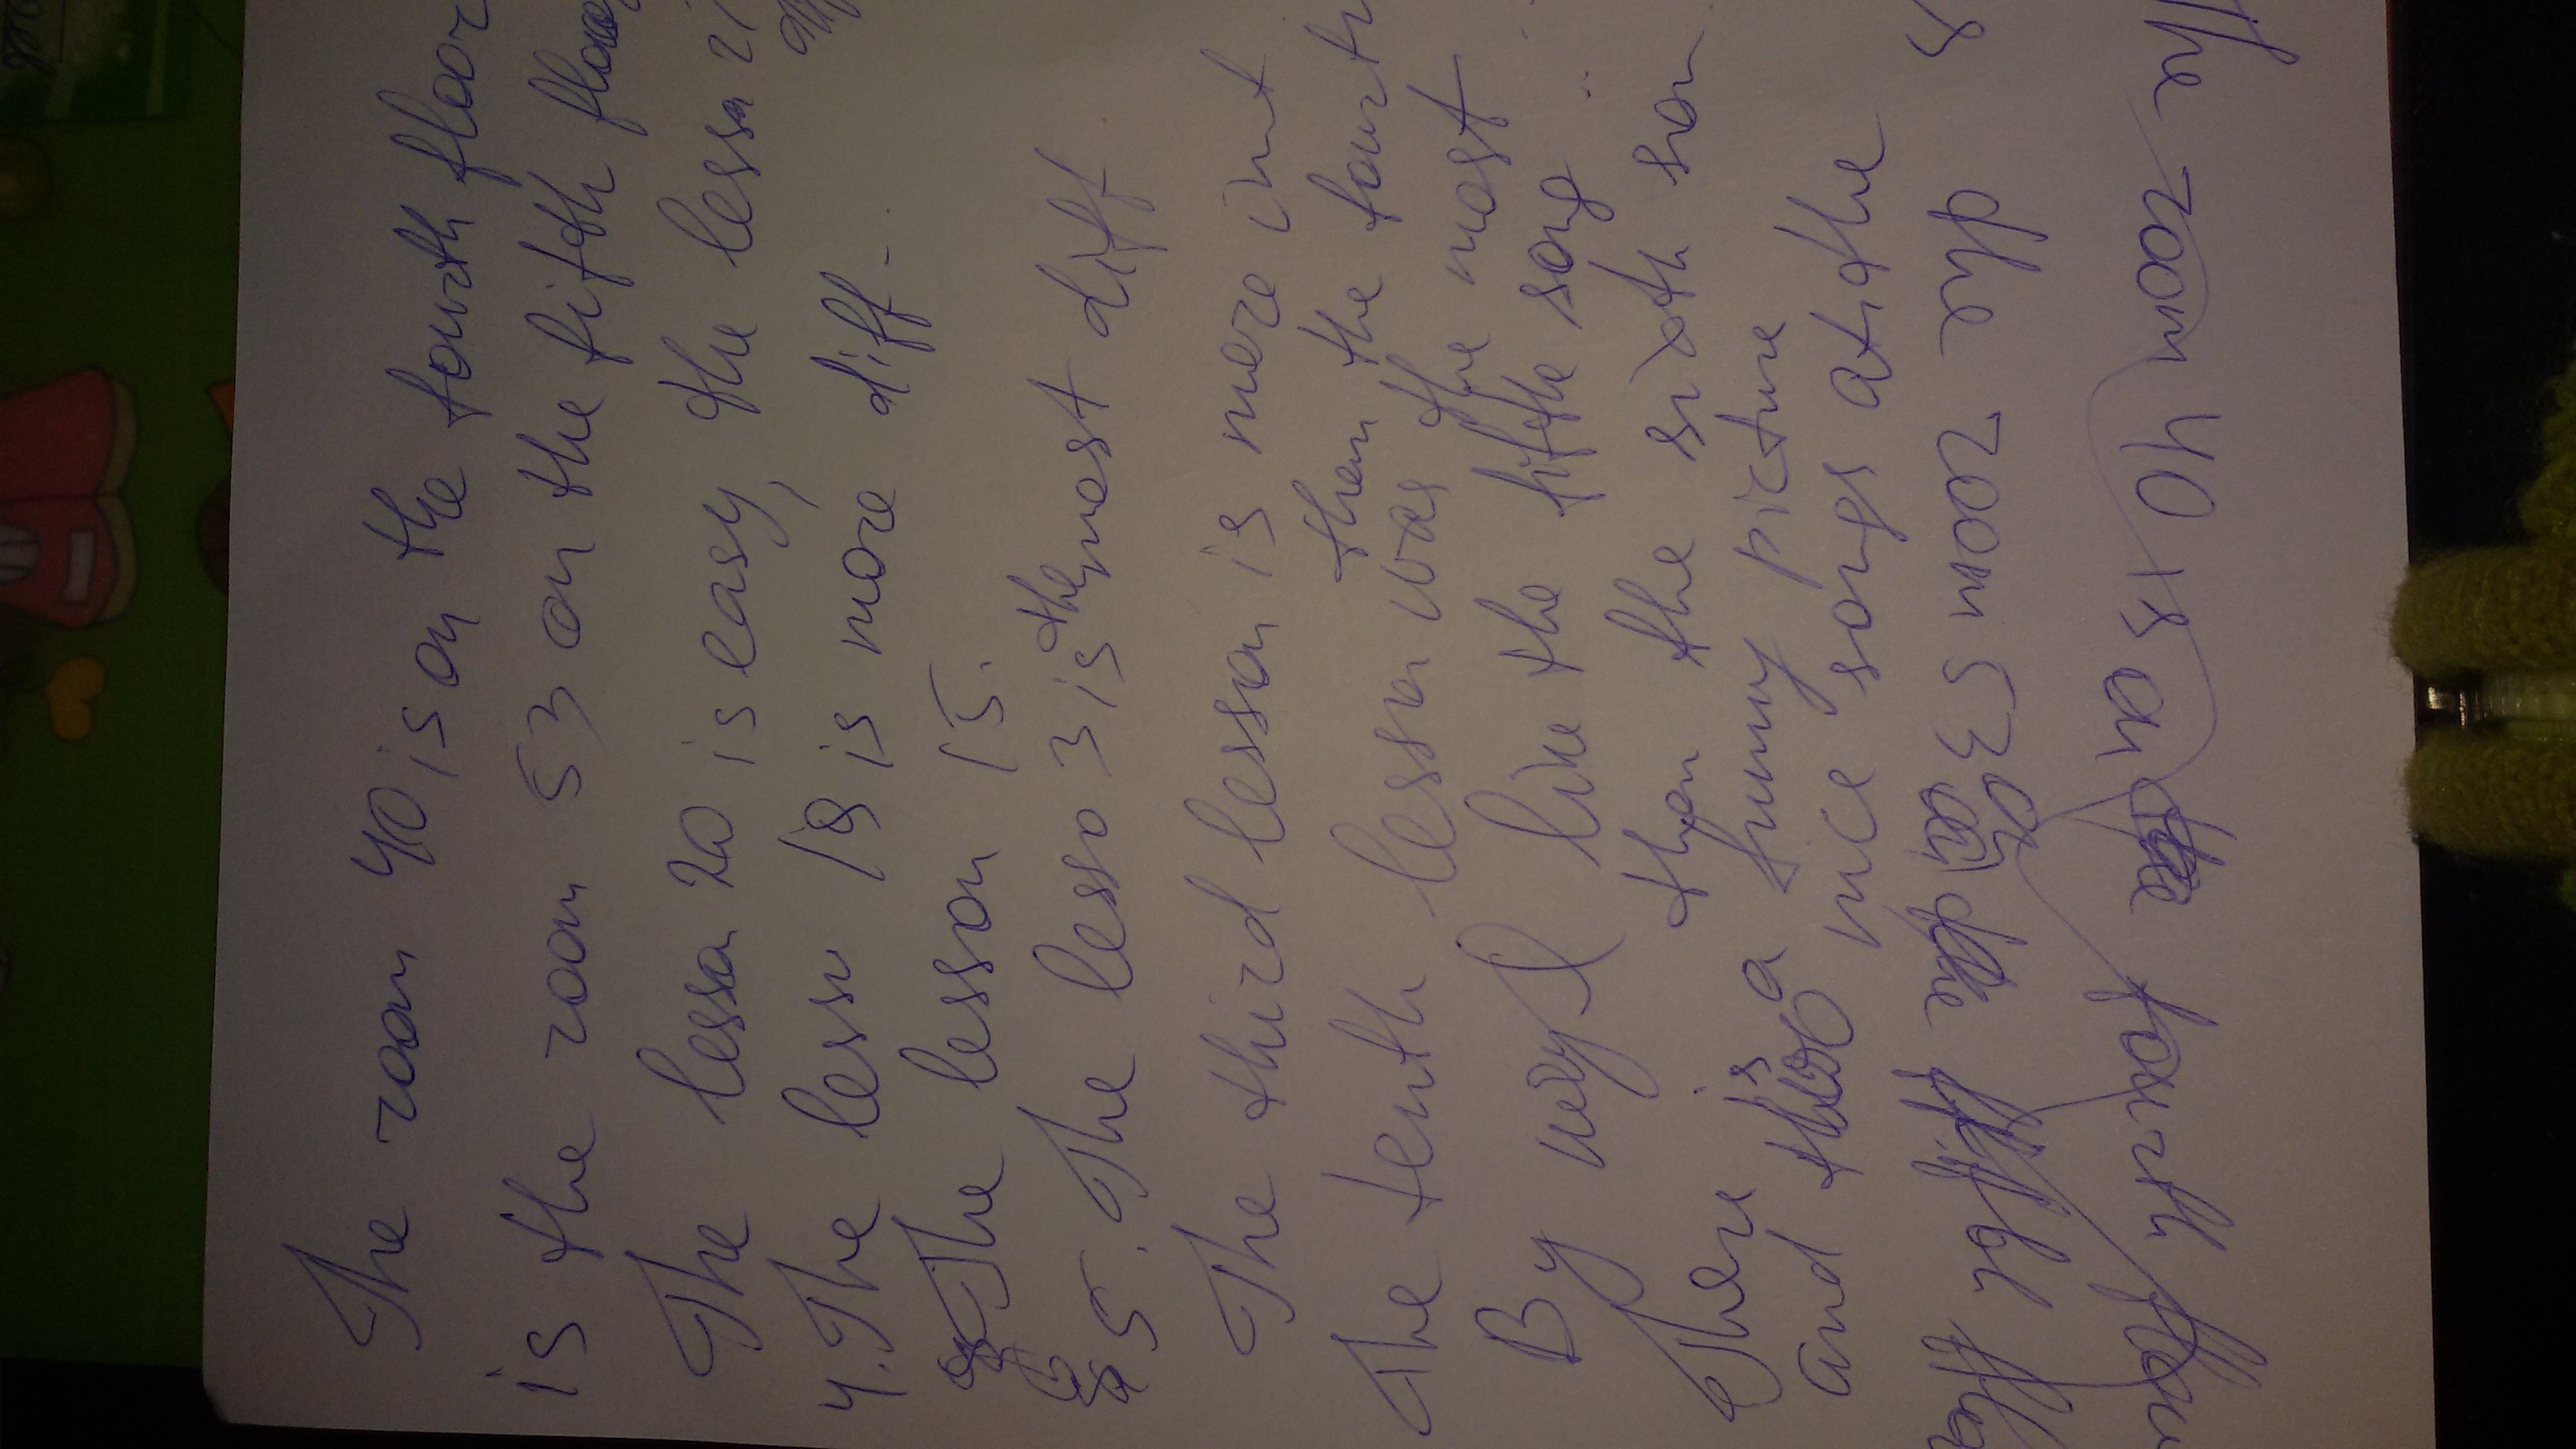 The room 40 is on the fourth floor
is the room 53 on the fifth floor
The lesson 20 is easy, the lesson 21
4. The lesso 19 is more diff.
The lesson 15.
5. The lesso 3 is the most diff
The third lesson is more int
than the fourt
The tenth lesson was the most
By way I like the fifth song
than the sixth son
There is a funny picture
and nice songs at the
room 53
the fourth
The room 40 is on